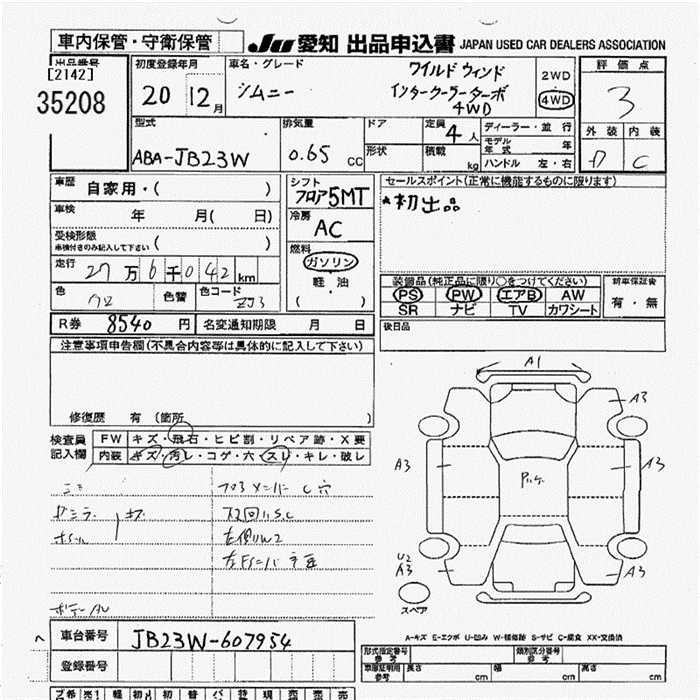 車内保管・守衛保管
JU 愛知 出品申込書 JAPAN USED CAR DEALERS ASSOCIATION
出品番号
[2142]
35208
初度登録年月
20 12月
車名・グレード
シムニー
ワイルド ウィンド
インタークーラーターボ
4WD
2WD
4WD
評価点
3
外装 内装
C
型式
ABA-JB23W
排気量
0.65 CC
ドア
形状
定員
4人
積載
kg
ディーラー・並行
モデル年式 年
ハンドル 左・右
車歴
自家用・( )
車検
年 月( 日)
受検形態
車検付きのみ記入して下さい ( )
走行
27万6千042km
色
色替
色コード
ZJ3
シフト
フロア5MT
冷房
AC
燃料
ガソリン
軽・油
( )
セールスポイント(正常に機能するものに限ります)
*初出品
装備品(純正品に限り○をつけてください)
PS PW エアB AW
SR ナビ TV カワシート
新車保証書
有・無
R券 8540円 名変通知期限 月 日
後日品
注意事項申告欄(不具合内容等は具体的に記入して下さい)
修復歴 有 (箇所 )
検査員
記入欄
FW キズ・飛石・ヒビ割・リペア跡・X要
内装 キズ・汚レ・コゲ・穴・スレ・キレ・破レ
フロアメンバー C穴
下回りS.C
左側リW2
ボデーAU
A1
A3
A3
A3
U2
A3
A3
スペア
A-キズ E-エクボ U-凹み W-補修跡 S-サビ C-腐食 XX-交換済
車台番号 JB23W-607954
登録番号
形式指定番号
参考
類別区分番号
参考
車庫証明用
参考
長さ cm 幅 cm 高さ cm